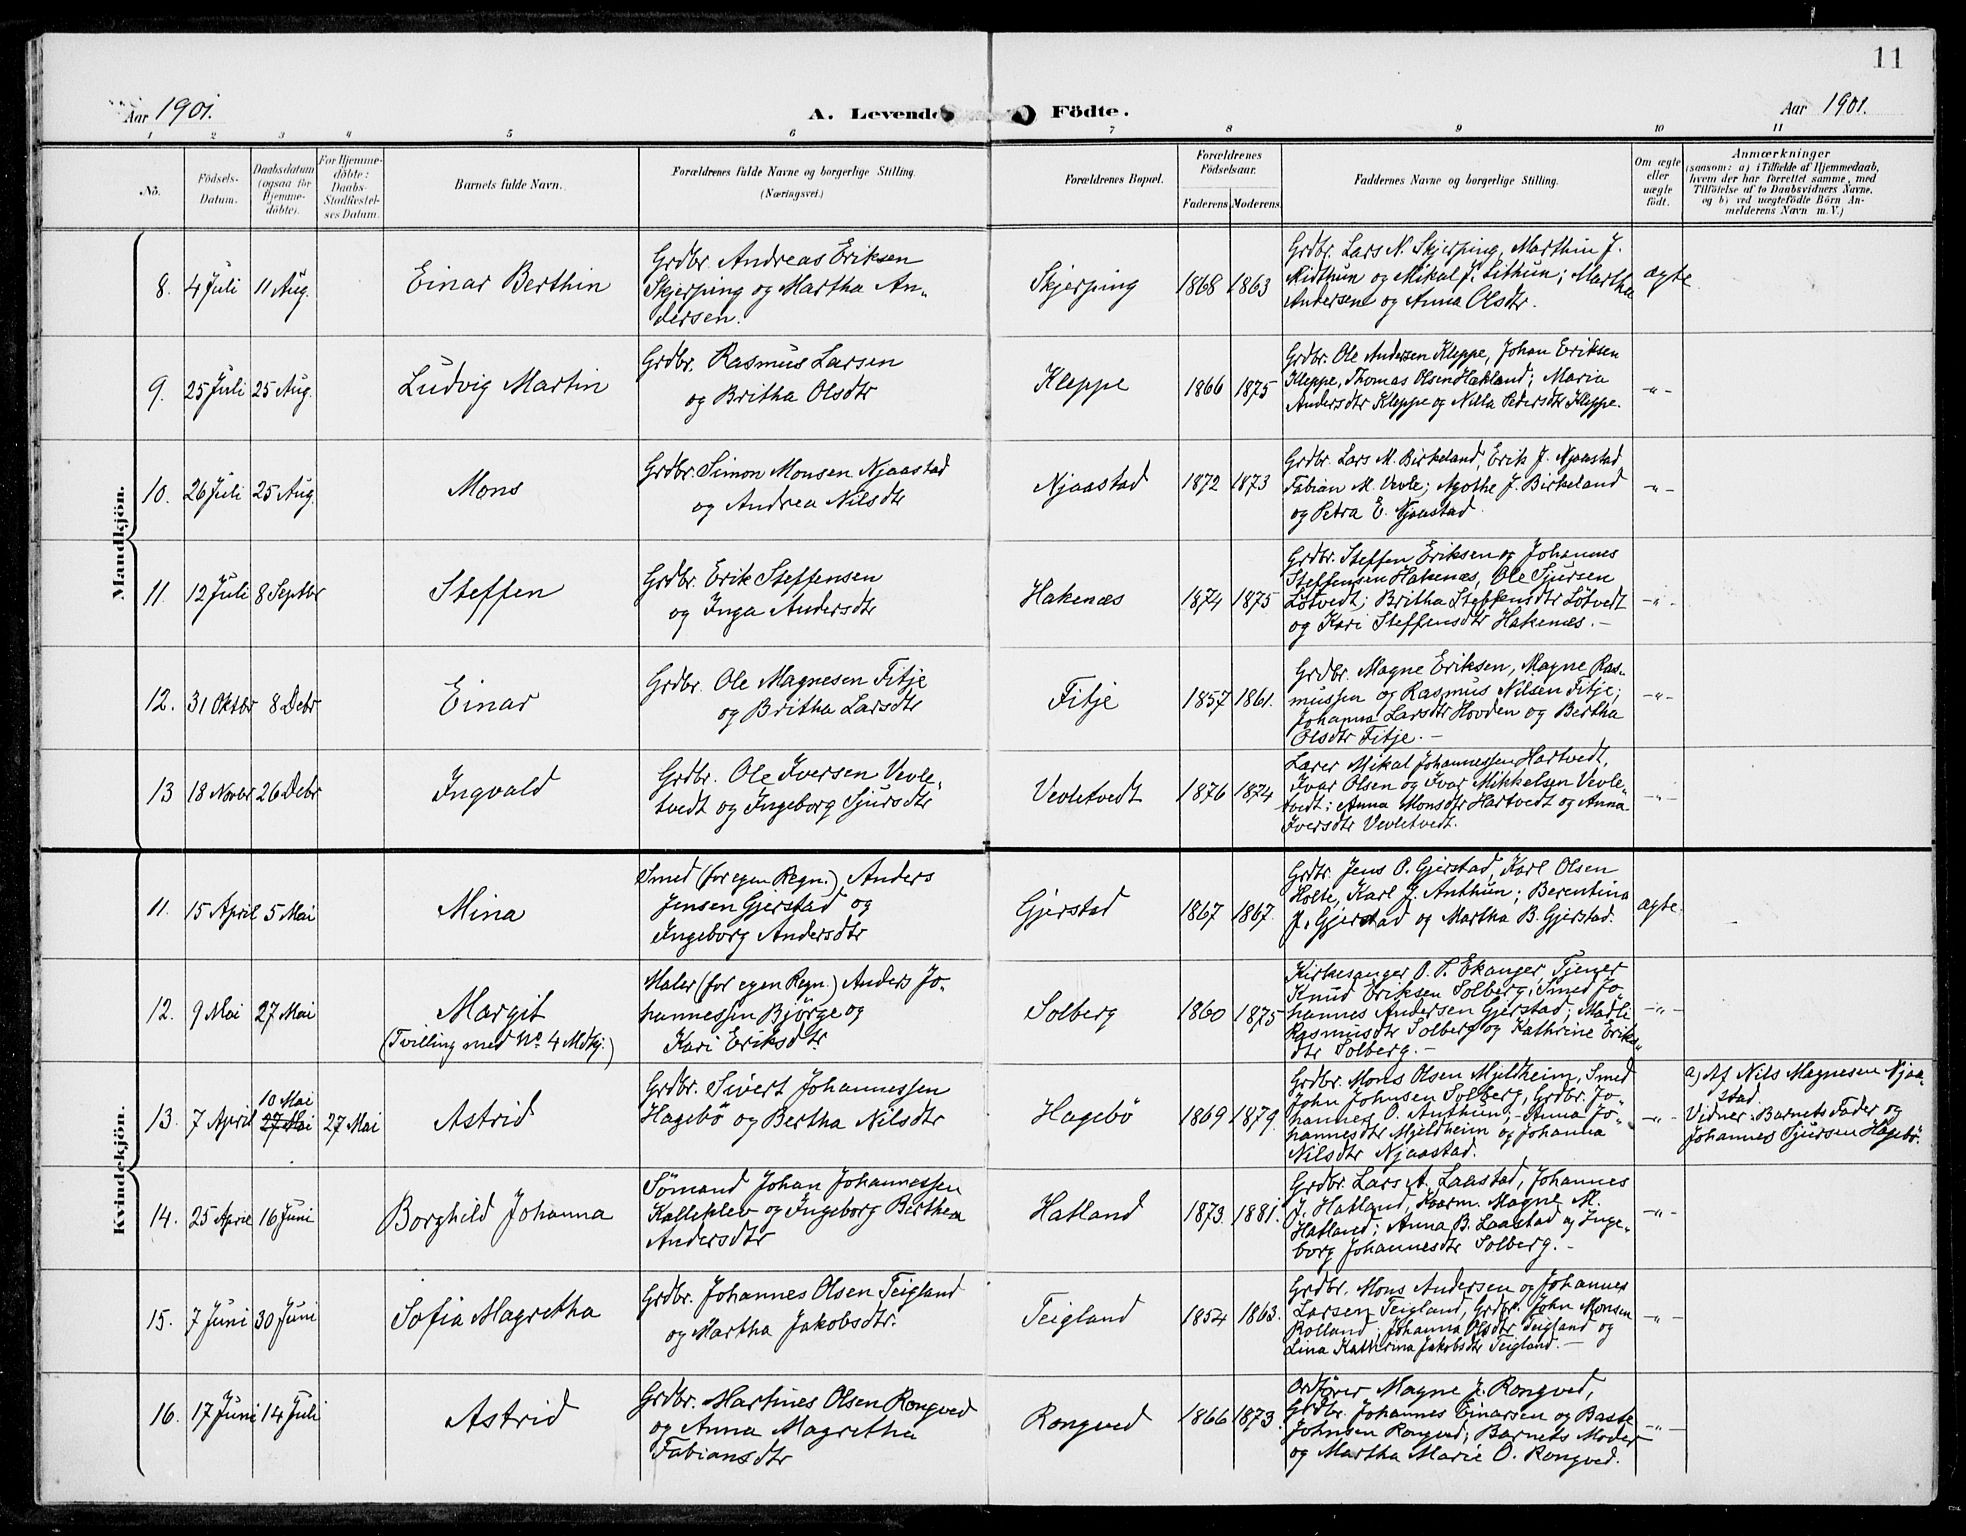 11
Aar 1901.
A. Levende Födte.
Aar 1901.
1 2 3 4 5 6 7 8 9 10 11
No.
Födsels-
Datum.
Daabsdatum
(ogsaa for
Hjemme-
döbte).
For Hjemme-
döbte:
Daabs-
Stadfæstel-
ses Datum.
Barnets fulde Navn.
Forældrenes fulde Navne og borgerlige Stilling.
(Næringsvei.)
Forældrenes Bopæl.
Forældrenes
Födselsaar.
Faderens. Moderens.
Faddernes Navne og borgerlige Stilling.
Om ægte
eller
uægte
födt.
Anmærkninger
(saasom: a) i Tilfælde af Hjemmedaab,
hvem der har forrettet samme, med
Tilföielse af to Daabsvidners Navne,
og b) ved uægtefödte Börn An-
melderens Navn m. V.)
Mandkjön.
8. 4 Juli 11 Aug.
Einar Berthin
Grdbr. Andreas Eriksen
Skjerping og Martha An-
dersen.
Skjerping 1868 1863
Grdbr. Lars N. Skjerping, Marthin J.
Midthun og Mikal J. Lithun; Martha
Andersen og Anna Olsdtr.
ægte
9. 25 Juli 25 Aug.
Ludvig Martin
Grdbr. Rasmus Larsen
og Britha Olsdtr
Kleppe 1866 1875
Grdbr. Ole Andersen Kleppe, Johan Eriksen
Kleppe, Thomas Olsen Hækland; Maria
Andersdtr Kleppe og Nilla Pedersdtr Kleppe.
-"-
10. 26 Juli 25 Aug.
Mons
Grdbr. Simon Monsen Njaastad
og Andrea Nilsdtr
Njaastad 1872 1873
Grdbr. Lars M. Birkeland, Erik J. Njaastad,
Fabian M. Vevle; Agothe J. Birkeland
og Petra E. Njaastad.
-"-
11. 12 Juli 8 Septbr
Steffen
Grdbr. Erik Steffensen
og Inga Andersdtr
Hakenæs 1874 1875
Grdbr. Steffen Eriksen og Johannes
Steffensen Hakenæs, Ole Sjursen
Løtvedt; Britha Steffensdtr Løtvedt
og Kari Steffensdtr Hakenæs. -
-"-
12. 31 Oktbr 8 Debr
Einar
Grdbr. Ole Magnesen Fitje
og Britha Larsdtr
Fitje 1857 1861.
Grdbr. Magne Eriksen, Magne Ras-
mussen og Rasmus Nilsen Fitje;
Johanna Larsdtr Hovden og Bertha
Olsdtr Fitje. -
-"-
13 18 Novbr 26 Debr
Ingvald
Grdbr. Ole Iversen Vevle-
tvedt og Ingeborg Sjursdtr
Vevletvedt 1876 1874
Lærer Mikal Johannessen Hartvedt,
Ivar Olsen og Ivar Mikkelsen Vevle-
tvedt; Anna Monsdtr Hartvedt og Anna
Iversdtr Vevletvedt.
-"-
Kvindekjön.
11. 15 April 5 Mai
Mina
Smed (for egen Regn.) Anders
Jensen Gjerstad og
Ingeborg Andersdtr
Gjerstad 1867 1867.
Grdbr. Jens P. Gjerstad, Karl Olsen
Holte, Karl J. Anthun; Berentina
J. Gjerstad og Martha B. Gjerstad.
ægte.
12. 9 Mai 27 Mai
Margit
(Tvilling med No. 4 Mdkj.)
Maler (for egen Regn.) Anders Jo-
hannessen Bjørge og
Kari Eriksdtr.
Solberg 1860 1875
Kirkesanger O. T. Ekanger, Tjener
Knud Eriksen Solberg, Smed Jo-
hannes Andersen Gjerstad; Madli
Rasmusdtr Solberg og Kathrine Eriks-
dtr Solberg. -
-"-
13. 7 April 10 Mai
27 Mai 27 Mai
Astrid
Grdbr. Sivert Johannessen
Hagebö og Bertha Nilsdtr
Hagebö 1869 1879.
Grdbr. Mons Olsen Mjeldheim, Smed
John Johnsen Solberg, Grdbr. Jo-
hannes O. Anthun; Anna Jo-
hannesdtr Mjeldheim og Johanna
Nilsdtr Njaastad.
-"-
a) Af Nils Magnesen Njaa-
stad.
Vidner: Barnets Fader og
Johannes Sjursen Hagebö.
14. 25 April 16 Juni
Borghild Johanna
Sömand Johan Johannessen
Kalleklev og Ingeborg Berthea
Andersdtr
Hatland 1873. 1881.
Grdbr Lars A. Laastad, Johannes
J. Hatland, Kaarm. Magne M.
Hatland; Anna B. Laastad og Inge-
borg Johannesdtr Solberg. -
-"-
15. 7 Juni 30 Juni
Sofia Magretha
Grdbr. Johannes Olsen Teigland
og Martha Jakobsdtr.
Teigland 1854 1863.
Grdbr. Mons Andersen og Johannes
Larsen Teigland, Grdbr. John Monsen
Rolland; Johanna Olsdtr Teigland og
Lina Kathrina Jakobsdtr Teigland. -
-"-
16. 17 Juni 14 Juli
Astrid
Grdbr. Martines Olsen Rongved
og Anna Magretha
Fabiansdtr
Rongved 1866 1873.
Ordfører Magne J. Rongved,
Grdbr. Johannes Einarsen og Baste
Johnsen Rongved; Barnets Moder
og Martha Marie O. Rongved.
-"-